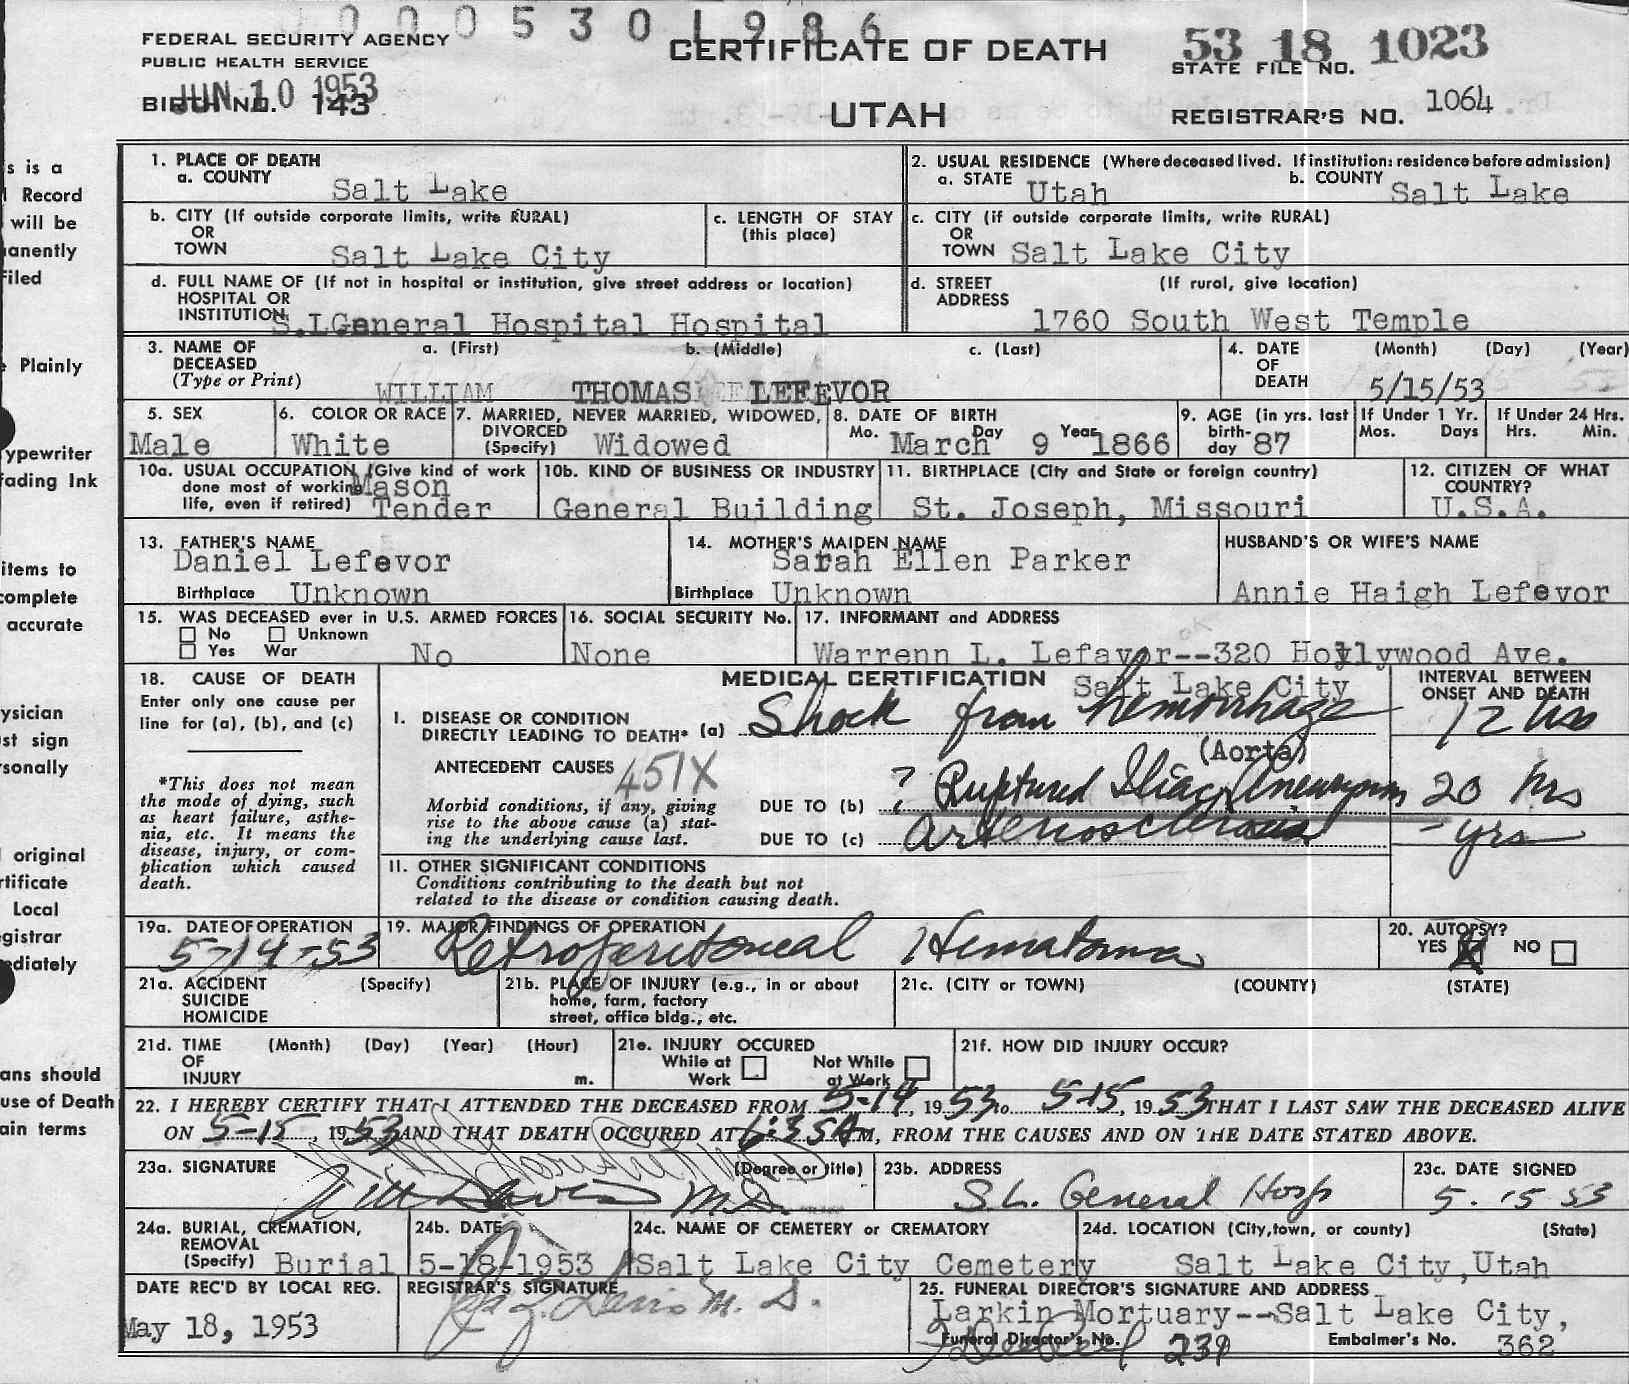 0000530 1986
FEDERAL SECURITY AGENCY
PUBLIC HEALTH SERVICE
JUN 10 1953
BIRTH NO. 143
CERTIFICATE OF DEATH
UTAH
53 18 1023
STATE FILE NO.
REGISTRAR'S NO. 1064
s is a
l Record
will be
anently
Filed
e Plainly
ypewriter
ading Ink
items to
complete
accurate
ysician
st sign
rsonally
original
rtificate
Local
gistrar
ediately
ans should
use of Death
ain terms
1. PLACE OF DEATH
a. COUNTY Salt Lake
2. USUAL RESIDENCE (Where deceased lived. If institution: residence before admission)
a. STATE Utah b. COUNTY Salt Lake
b. CITY (If outside corporate limits, write RURAL)
OR
TOWN Salt Lake City
c. LENGTH OF STAY
(this place)
c. CITY (if outside corporate limits, write RURAL)
OR
TOWN Salt Lake City
d. FULL NAME OF (If not in hospital or institution, give street address or location)
HOSPITAL OR
INSTITUTION S.L General Hospital Hospital
d. STREET (If rural, give location)
ADDRESS
1760 South West Temple
3. NAME OF a. (First) b. (Middle) c. (Last)
DECEASED
(Type or Print) WILLIAM THOMAS LEFEVOR
4. DATE (Month) (Day) (Year)
OF
DEATH 5/15/53
5. SEX
Male
6. COLOR OR RACE
White
7. MARRIED, NEVER MARRIED, WIDOWED,
DIVORCED
(Specify) Widowed
8. DATE OF BIRTH
Mo. Day Year
March 9 1866
9. AGE (in yrs. last
birth-
day 87
If Under 1 Yr.
Mos. Days
If Under 24 Hrs.
Hrs. Min.
10a. USUAL OCCUPATION (Give kind of work
done most of working
life, even if retired)
Mason
Tender
10b. KIND OF BUSINESS OR INDUSTRY
General Building
11. BIRTHPLACE (City and State or foreign country)
St. Joseph, Missouri
12. CITIZEN OF WHAT
COUNTRY?
U.S.A.
13. FATHER'S NAME
Daniel Lefevor
Birthplace Unknown
14. MOTHER'S MAIDEN NAME
Sarah Ellen Parker
Birthplace Unknown
HUSBAND'S OR WIFE'S NAME
Annie Haigh Lefevor
15. WAS DECEASED ever in U.S. ARMED FORCES
No Unknown
Yes War No
16. SOCIAL SECURITY No.
None
17. INFORMANT and ADDRESS
ok
Warrenn L. Lefavor--320 Hollywood Ave.
Salt Lake City
18. CAUSE OF DEATH
Enter only one cause per
line for (a), (b), and (c)
*This does not mean
the mode of dying, such
as heart failure, asthe-
nia, etc. It means the
disease, injury, or com-
plication which caused
death.
MEDICAL CERTIFICATION
INTERVAL BETWEEN
ONSET AND DEATH
I. DISEASE OR CONDITION
DIRECTLY LEADING TO DEATH* (a) Shock from hemorrhage 12 hrs
ANTECEDENT CAUSES 451X (Aorta)
Morbid conditions, if any, giving
rise to the above cause (a) stat-
ing the underlying cause last.
DUE TO (b) ? Ruptured Iliac Aneurysm 20 hrs
DUE TO (c) Arteriosclerosis - yrs
II. OTHER SIGNIFICANT CONDITIONS
Conditions contributing to the death but not
related to the disease or condition causing death.
19a. DATE OF OPERATION
5-14-53
19. MAJOR FINDINGS OF OPERATION
Retroperitoneal Hematoma
20. AUTOPSY?
YES X NO
21a. ACCIDENT (Specify)
SUICIDE
HOMICIDE
21b. PLACE OF INJURY (e.g., in or about
home, farm, factory
street, office bldg., etc.
21c. (CITY OR TOWN) (COUNTY) (STATE)
21d. TIME (Month) (Day) (Year) (Hour)
OF
INJURY m.
21e. INJURY OCCURED
While at Work Not While at Work
21f. HOW DID INJURY OCCUR?
22. I HEREBY CERTIFY THAT I ATTENDED THE DECEASED FROM 5-14, 1953 to 5-15, 1953 THAT I LAST SAW THE DECEASED ALIVE
ON 5-15, 1953 AND THAT DEATH OCCURED AT 6:35 AM, FROM THE CAUSES AND ON THE DATE STATED ABOVE.
23a. SIGNATURE (Degree or title)
Davis M.D.
23b. ADDRESS
S.L. General Hosp
23c. DATE SIGNED
5-15 53
24a. BURIAL, CREMATION,
REMOVAL
(Specify) Burial
24b. DATE
5-18-1953
24c. NAME OF CEMETERY or CREMATORY
Salt Lake City Cemetery
24d. LOCATION (City, town, or county) (State)
Salt Lake City, Utah
DATE REC'D BY LOCAL REG.
May 18, 1953
REGISTRAR'S SIGNATURE
M. D.
25. FUNERAL DIRECTOR'S SIGNATURE AND ADDRESS
Larkin Mortuary--Salt Lake City,
Funeral Director's No. 239 Embalmer's No. 362